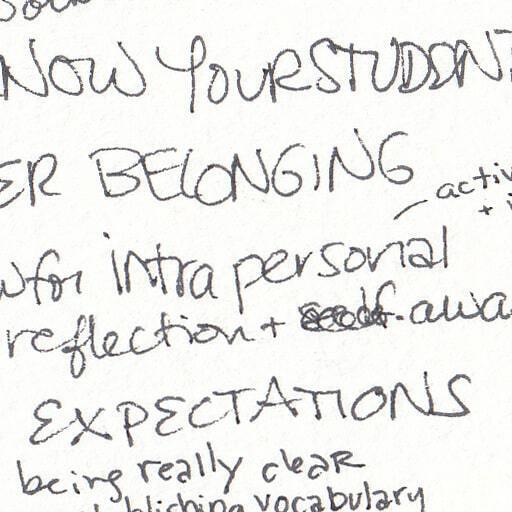 NOW YOUR STUDDN
ER BELONGING
activ
for intra personal
reflection + self-awa
EXPECTATIONS
being really clear
blishing vocabulary